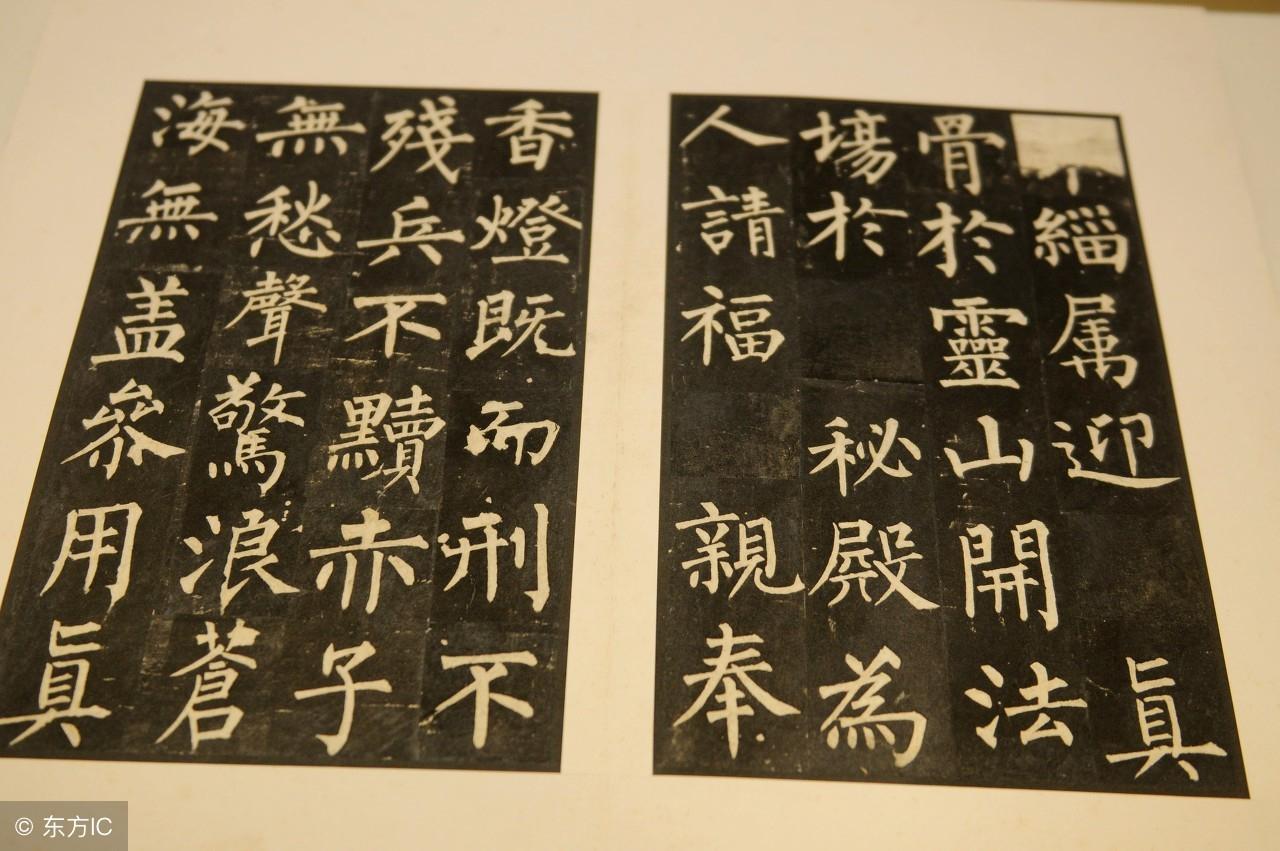 緇属迎眞
骨於靈山開法
場於秘殿為
人請福親奉
香燈既而刑不
殘兵不黷赤子
無愁聲驚浪蒼
海無盖叅用眞
© 东方IC